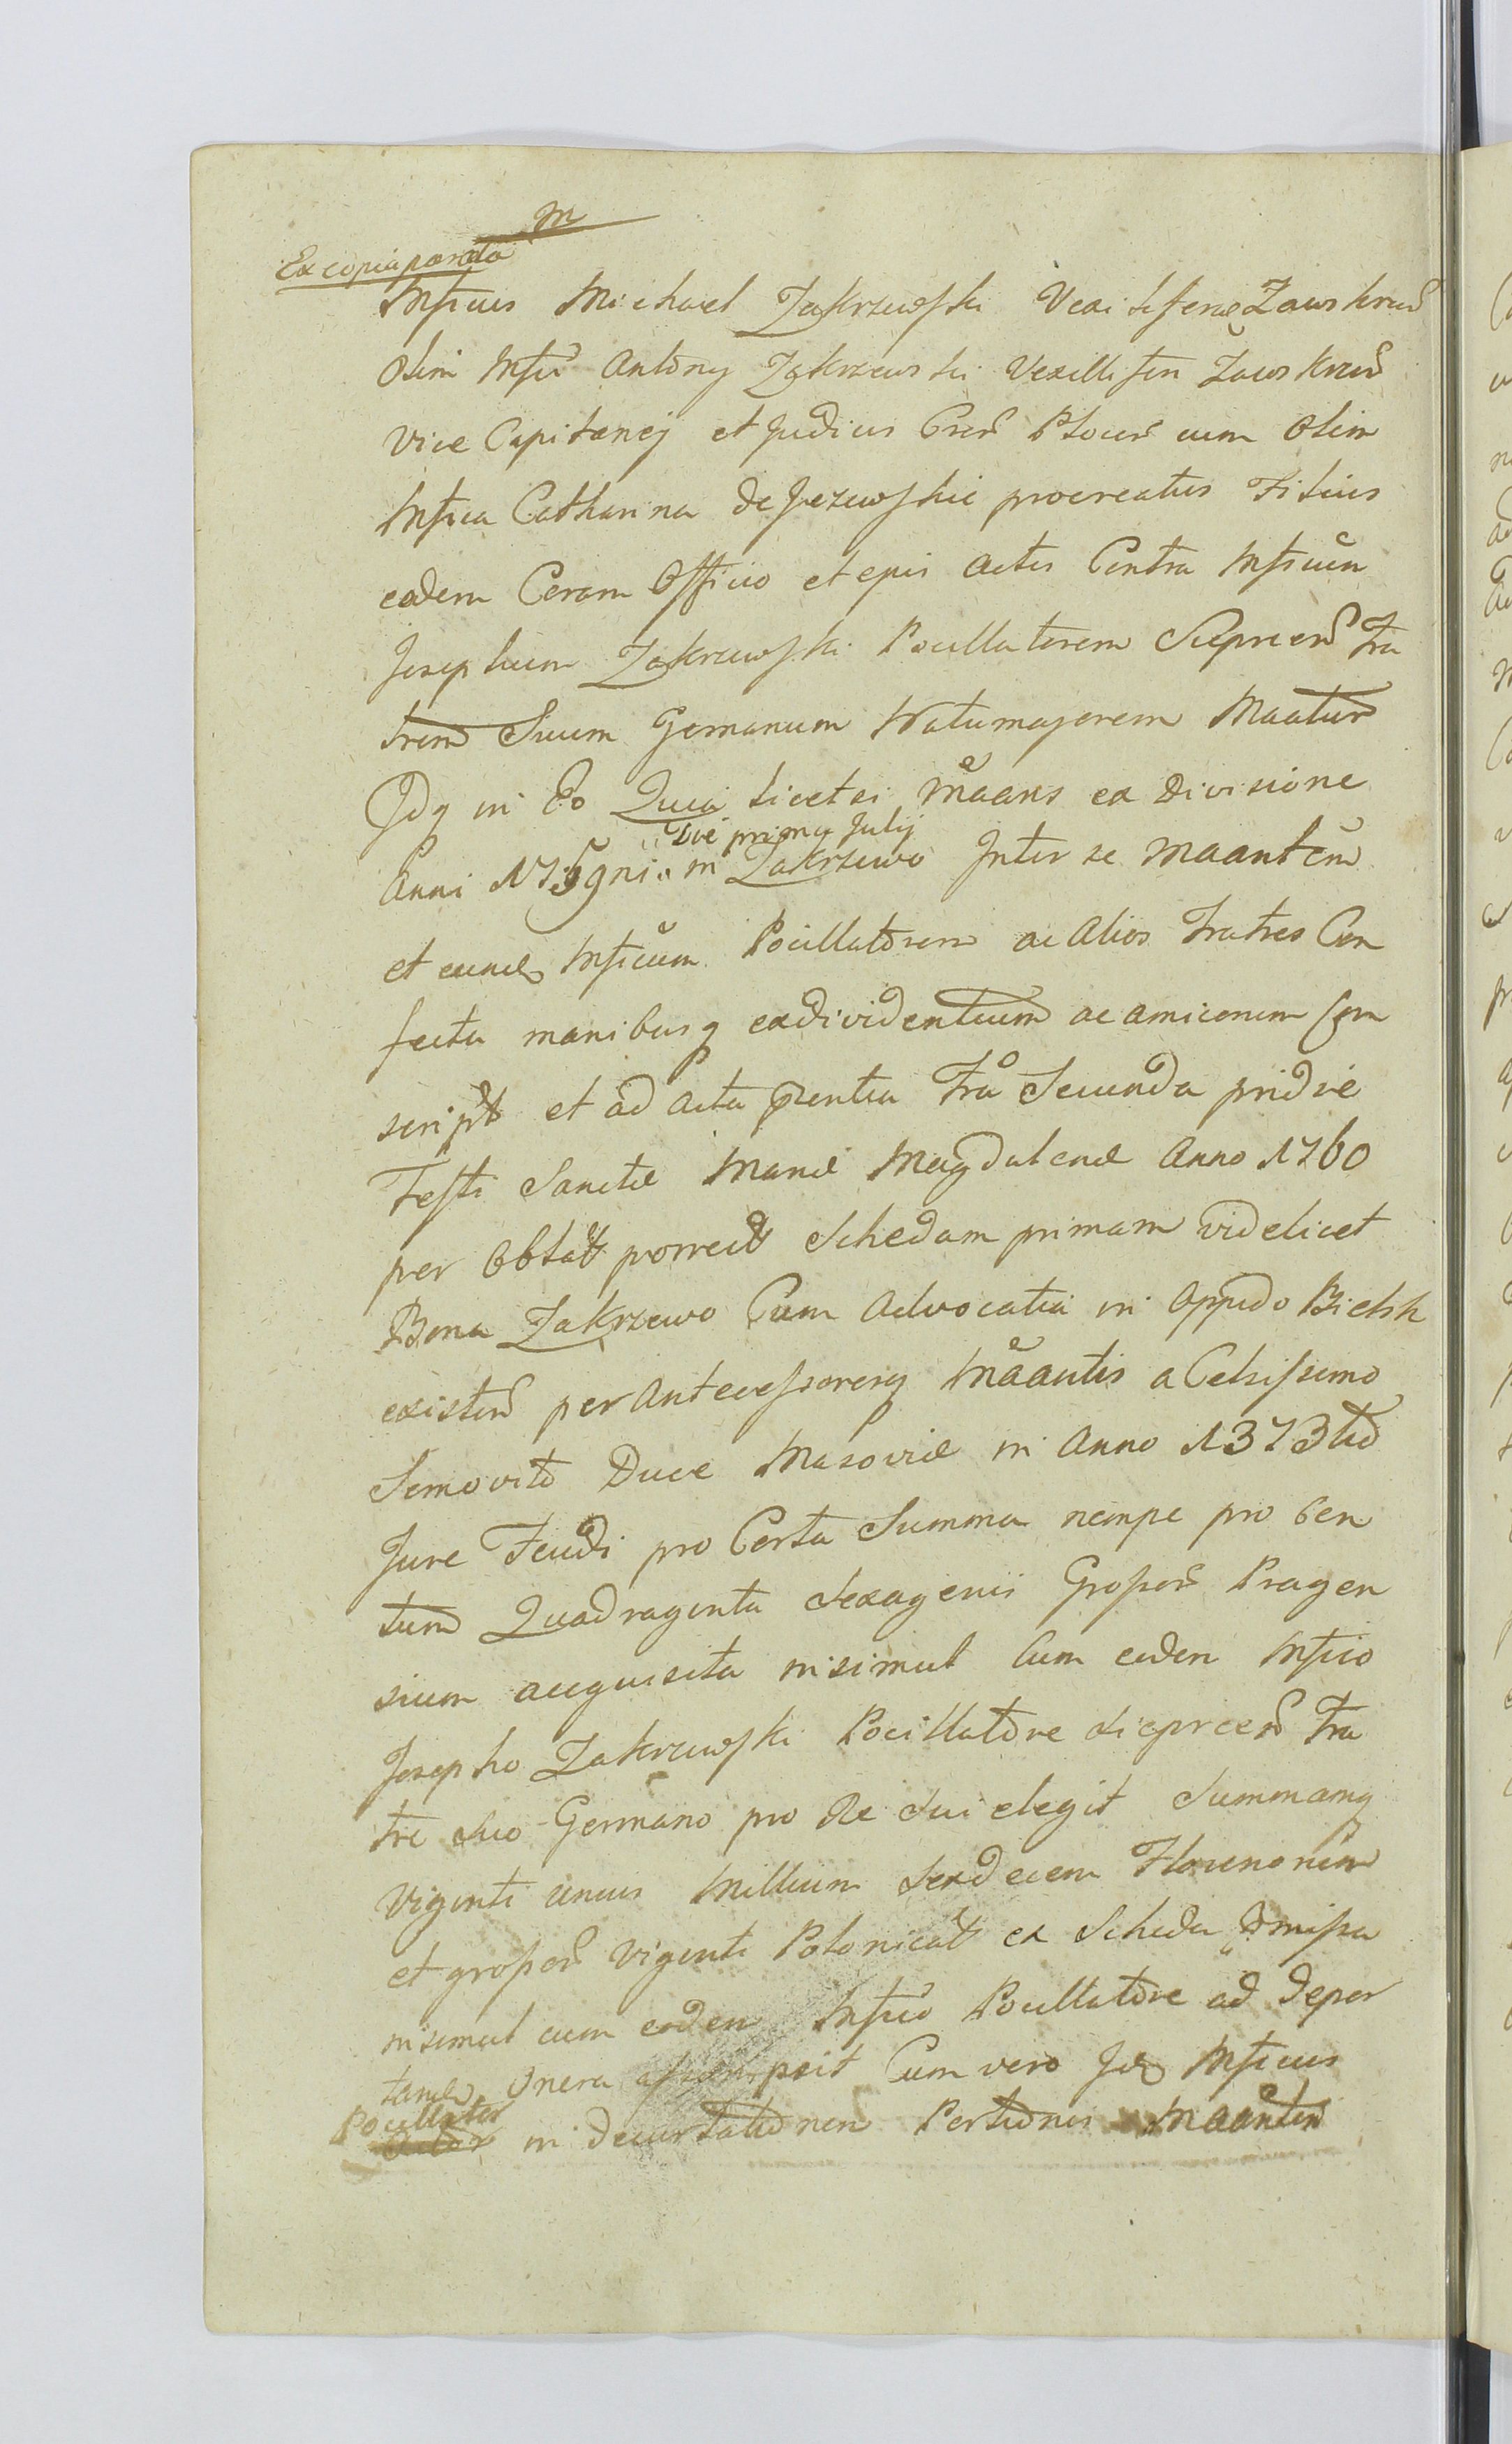 m
Ex copia parata
Mfcus Michael Zakrzewski Vexilliferæ Zawskrzeñ
Olim Mfci Antony Zakrzewski Vexilliferi Zawskrzeñ
Vice Capitanej et Judicis Creñ Ploceñ cum Olim
Mfica Catharina de Jezewskie procreatus Filius
eodem Coram Officio et epis Actis Contra Mficum
Josephum Zakrzewski Pocillatorem Siepreceñ Fra
trem Suum Germanum Natumajorem Maatur
Idq in Eo Quia licet si Maans ex Divisione
Die prima Julij
Anni 1759ni in Zakrzewo Inter se Maantem
et eund Mficum Pocillatorem ac Alios Fratres Con
fecta manibusq exdividentium ac amicorum con
script et ad Acta pzentia Fra Secunda pridie
Festi Sanctæ Mariæ Magdalenæ Anno 1760
per Oblat porrect Schedam primam videlicet
Bona Zakrzewo Cum Advocatia in Oppido Bielsk
existeñ per Antecessoresq Maantis a Celsissimo
Semovito Duce Masoviæ in Anno 1373tio
Jure Feudi pro Certa Summa nempe pro Cen
tum Quadraginta Sexagenis Grossor Pragen
sium acquisita insimul Cum eodem Mfico
Josepho Zakrzewski Pocillatore Siepreceñ Fra
tre Suo Germano pro Re Sui elegit Summamq
Viginti unius Millium Sexdecem Florenorum
et grossor Viginti Polonical ex Scheda pmissa
insimul cum eodem Mfico Pocillatore ad depor
tand Onera assumpsit Cum vero Id Mficus
Pocillator
in decurtationem Portionis Maantis